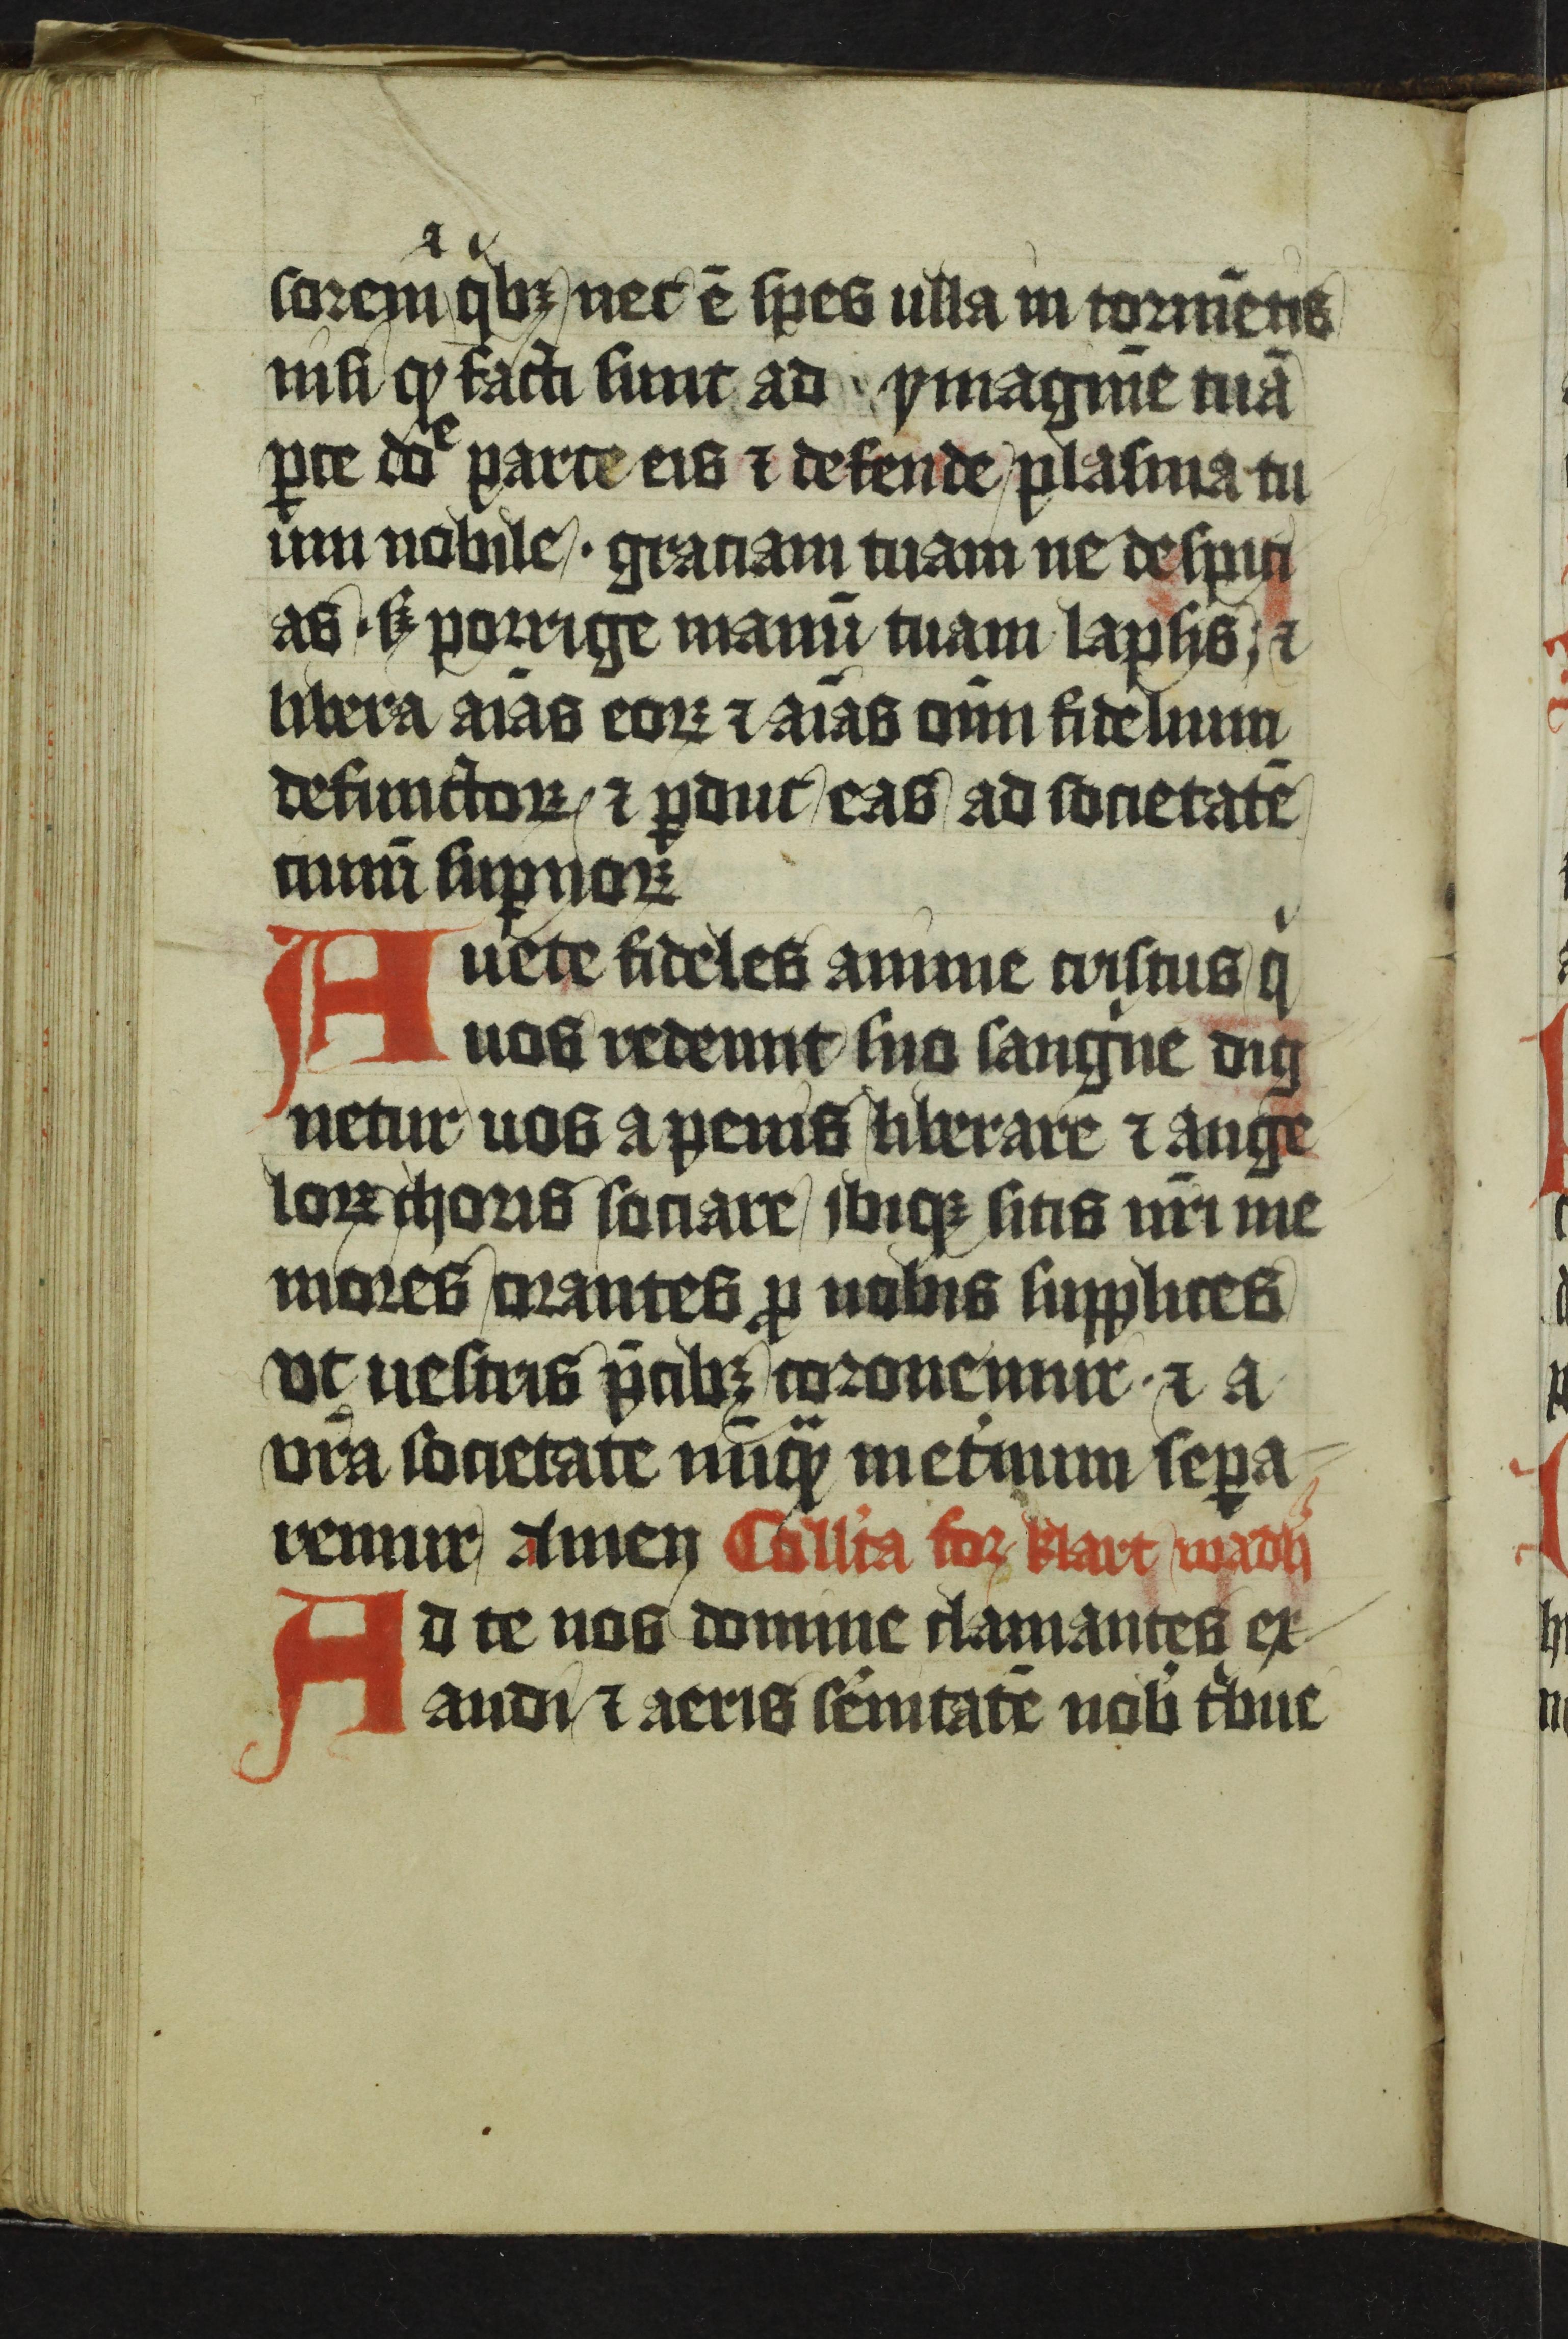 sorem qͥbꝫ nec ē spes ulla in tormētis
nisi qꝫ facti sunt ad ymaginē tuā
ꝑce doᵉ parce eis ⁊ defende plasma tu
um nobile · graciam tuam ne despici
as · sꝫ porrige manū tuam lapsis ; ⁊
libera aīas eoꝝ ⁊ aīas oīm fidelium
defunctoꝝ ⁊ ꝑduc eas ad societatē
ciuiū suꝑnoꝝ
Auete fideles anime cristus qͥ
uos redemit suo sangͥne dig
netur uos a penis liberare ⁊ ange
loꝝ choris sociare ibiqꝫ sitis nrī me
mores orantes ꝓ nobis supplices
vt uestris p̄cibꝫ coronemur · ⁊ a
vrā societate nūqͣꝫ inet͛num seꝑa
remur Amen Coll͛ta for klart wædh͛
Ad te nos domine clamantes ex
audi ⁊ aeris se͛nitatē nob͛ tͥbue